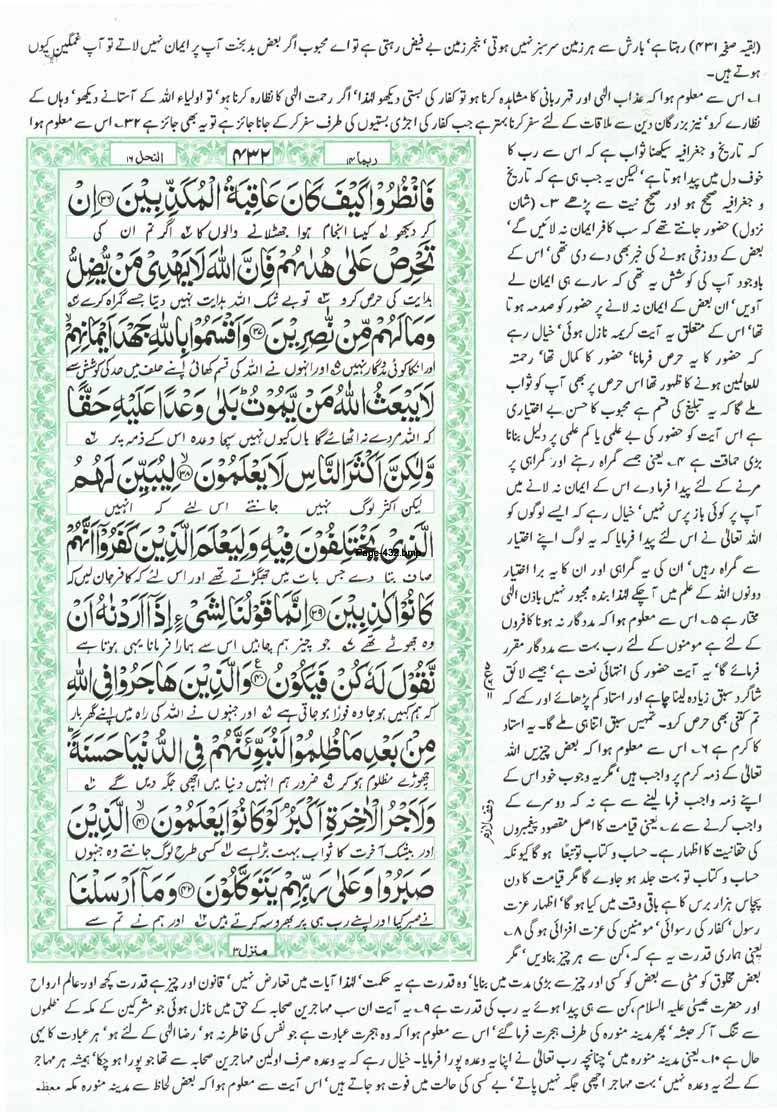 (بقیہ صفحہ ۴۳۱) رہتا ہے، بارش سے ہر زمین سرسبز نہیں ہوتی، بنجر زمین بے فیض رہتی ہے تو اے محبوب اگر بعض بدبخت آپ پر ایمان نہیں لاتے تو آپ غمگین کیوں
ہوتے ہیں۔
۱۔ اس سے معلوم ہوا کہ عذاب الٰہی اور قہر ربانی کا مشاہدہ کرنا ہو تو کفار کی بستی دیکھو لہٰذا، اگر رحمت الٰہی کا نظارہ کرنا ہو، تو اولیاء اللہ کے آستانے دیکھو، وہاں کے
نظارے کرو، نیز بزرگان دین سے ملاقات کے لئے سفر کرنا بہتر ہے جب کفار کی اجڑی بستیوں کی طرف سفر کر کے جانا جائز ہے تو یہ بھی جائز ہے ۲۔ اس سے معلوم ہوا
النحل ۱۶
۴۳۲
ربما ۱۴
فَانْظُرُوْا كَيْفَ كَانَ عَاقِبَةُ الْمُكَذِّبِيْنَ ﴿۳۶﴾ اِنْ
کر دیکھو کیسا انجام ہوا جھٹلانے والوں کا اگر تم ان کی
تَحْرِصْ عَلٰى هُدٰىهُمْ فَاِنَّ اللّٰهَ لَا يَهْدِيْ مَنْ يُّضِلُّ
ہدایت کی حرص کرو تو بے شک اللہ ہدایت نہیں دیتا جسے گمراہ کرے
وَمَا لَهُمْ مِّنْ نّٰصِرِيْنَ ﴿۳۷﴾ وَاَقْسَمُوْا بِاللّٰهِ جَهْدَ اَيْمَانِهِمْ
اور انکا کوئی مددگار نہیں اور انہوں نے اللہ کی قسم کھائی اپنے حلف میں حد کی کوشش سے
لَا يَبْعَثُ اللّٰهُ مَنْ يَّمُوْتُ بَلٰى وَعْدًا عَلَيْهِ حَقًّا
کہ اللہ مردے نہ اٹھائے گا ہاں کیوں نہیں سچا وعدہ اس کے ذمہ پر
وَّلٰكِنَّ اَكْثَرَ النَّاسِ لَا يَعْلَمُوْنَ ﴿۳۸﴾ لِيُبَيِّنَ لَهُمُ
لیکن اکثر لوگ نہیں جانتے اس لئے کہ انہیں
الَّذِيْ يَخْتَلِفُوْنَ فِيْهِ وَلِيَعْلَمَ الَّذِيْنَ كَفَرُوْۤا اَنَّهُمْ
Page-432.bmp
صاف بتا دے جس بات میں جھگڑتے تھے اور اس لئے کہ کافر جان لیں کہ
كَانُوْا كٰذِبِيْنَ ﴿۳۹﴾ اِنَّمَا قَوْلُنَا لِشَيْءٍ اِذَاۤ اَرَدْنٰهُ اَنْ
وہ جھوٹے تھے جو چیز ہم چاہیں اس سے ہمارا فرمانا یہی ہوتا ہے
نَّقُوْلَ لَهٗ كُنْ فَيَكُوْنُ ﴿۴۰﴾ وَالَّذِيْنَ هَاجَرُوْا فِي اللّٰهِ
کہ ہم کہیں ہو جا وہ فورًا ہو جاتی ہے اور جنہوں نے اللہ کی راہ میں اپنے گھر بار
مِنْۢ بَعْدِ مَا ظُلِمُوْا لَنُبَوِّئَنَّهُمْ فِي الدُّنْيَا حَسَنَةً
چھوڑے مظلوم ہو کر ضرور ہم انہیں دنیا میں اچھی جگہ دیں گے
وَلَاَجْرُ الْاٰخِرَةِ اَكْبَرُ لَوْ كَانُوْا يَعْلَمُوْنَ ﴿۴۱﴾ الَّذِيْنَ
اور بیشک آخرت کا ثواب بہت بڑا ہے کسی طرح لوگ جانتے وہ جنہوں
صَبَرُوْا وَعَلٰى رَبِّهِمْ يَتَوَكَّلُوْنَ ﴿۴۲﴾ وَمَاۤ اَرْسَلْنَا
نے صبر کیا اور اپنے رب ہی پر بھروسہ کرتے ہیں اور ہم نے تم سے
منزل ۳
وقف لازم
کہ تاریخ و جغرافیہ سیکھنا ثواب ہے کہ اس سے رب کا
خوف دل میں پیدا ہوتا ہے، لیکن یہ جب ہی ہے کہ تاریخ
و جغرافیہ صحیح ہو اور صحیح نیت سے پڑھے ۳۔ (شان
نزول) حضور جانتے تھے کہ سب کافر ایمان نہ لائیں گے،
بعض کے دوزخی ہونے کی خبر بھی دے دی تھی، اس کے
باوجود آپ کی کوشش یہ تھی کہ سارے ہی ایمان لے
آویں، ان بعض کے ایمان نہ لانے پر حضور کو صدمہ ہوتا
تھا، اس کے متعلق یہ آیت کریمہ نازل ہوئی، خیال رہے
کہ حضور کا یہ حرص فرمانا، حضور کا کمال تھا، رحمتہ
للعالمین ہونے کا ظہور تھا اس حرص پر بھی آپ کو ثواب
ملے گا کہ یہ تبلیغ کی قسم ہے محبوب کا حسن بے اختیاری
ہے اس آیت کو حضور کی بے علمی یا کم علمی پر دلیل بنانا
بڑی حماقت ہے ۴۔ یعنی جسے گمراہ رہنے اور گمراہی پر
مرنے کے لئے پیدا فرما دے اس کے ایمان نہ لانے میں
آپ پر کوئی باز پرس نہیں، خیال رہے کہ ایسے لوگوں کو
اللہ تعالیٰ نے اس لئے پیدا فرمایا کہ یہ لوگ اپنے اختیار
سے گمراہ رہیں، ان کی یہ گمراہی اور ان کا یہ برا اختیار
دونوں اللہ کے علم میں آ چکے لہٰذا بندہ مجبور نہیں باذن الٰہی
مختار ہے ۵۔ اس سے معلوم ہوا کہ مددگار نہ ہونا کافروں
کے لئے ہے مومنوں کے لئے رب بہت سے مددگار مقرر
فرمائے گا، یہ آیت حضور کی انتہائی نعت ہے، جیسے لائق
شاگرد سبق زیادہ لینا چاہے اور استاد کم پڑھائے اور کہے کہ
تم کتنی بھی حرص کرو۔ تمہیں سبق اتنا ہی ملے گا۔ یہ استاد
کا کرم ہے ۶۔ اس سے معلوم ہوا کہ بعض چیزیں اللہ
تعالیٰ کے ذمہ کرم پر واجب ہیں، مگر یہ وجوب خود اس کے
اپنے ذمہ واجب فرما لینے سے ہے نہ کہ دوسرے کے
واجب کرنے سے ۷۔ یعنی قیامت کا اصل مقصود پیغمبروں
کی حقانیت کا اظہار ہے۔ حساب و کتاب تو تبعًا ہو گا کیونکہ
حساب و کتاب تو بہت جلد ہو جاوے گا مگر قیامت کا دن
پچاس ہزار برس کا ہے باقی وقت میں کیا ہو گا، اظہار عزت
رسول، کفار کی رسوائی، مومنین کی عزت افزائی ہو گی ۸۔
یعنی ہماری قدرت یہ ہے کہ کن سے ہر چیز بنا دیں، مگر
بعض مخلوق کو مٹی سے بعض کو کسی اور چیز سے بڑی مدت میں بنایا، وہ قدرت ہے یہ حکمت، لہٰذا آیات میں تعارض نہیں، قانون اور چیز ہے قدرت کچھ اور، عالم ارواح
اور حضرت عیسیٰ علیہ السلام، کن سے ہی پیدا ہوئے یہ رب کی قدرت ہے ۹۔ یہ آیت ان سب مہاجرین صحابہ کے حق میں نازل ہوئی جو مشرکین کے مکہ کے ظلموں
سے تنگ آ کر حبشہ، پھر مدینہ منورہ کی طرف ہجرت فرما گئے، اس سے معلوم ہوا کہ وہ ہجرت عبادت ہے جو نفس کی خاطر نہ ہو، رضا الٰہی کے لئے ہو، ہر عبادت کا یہی
حال ہے ۱۰۔ یعنی مدینہ منورہ میں، چنانچہ رب تعالیٰ نے اپنا یہ وعدہ پورا فرمایا۔ خیال رہے کہ یہ وعدہ صرف اولین مہاجرین صحابہ سے تھا جو پورا ہو چکا، ہمیشہ ہر مہاجر
کے لئے یہ وعدہ نہیں، بہت مہاجر اچھی جگہ نہیں پاتے، بے کسی کی حالت میں فوت ہو جاتے ہیں، اس آیت سے معلوم ہوا کہ بعض لحاظ سے مدینہ منورہ مکہ معظمہ